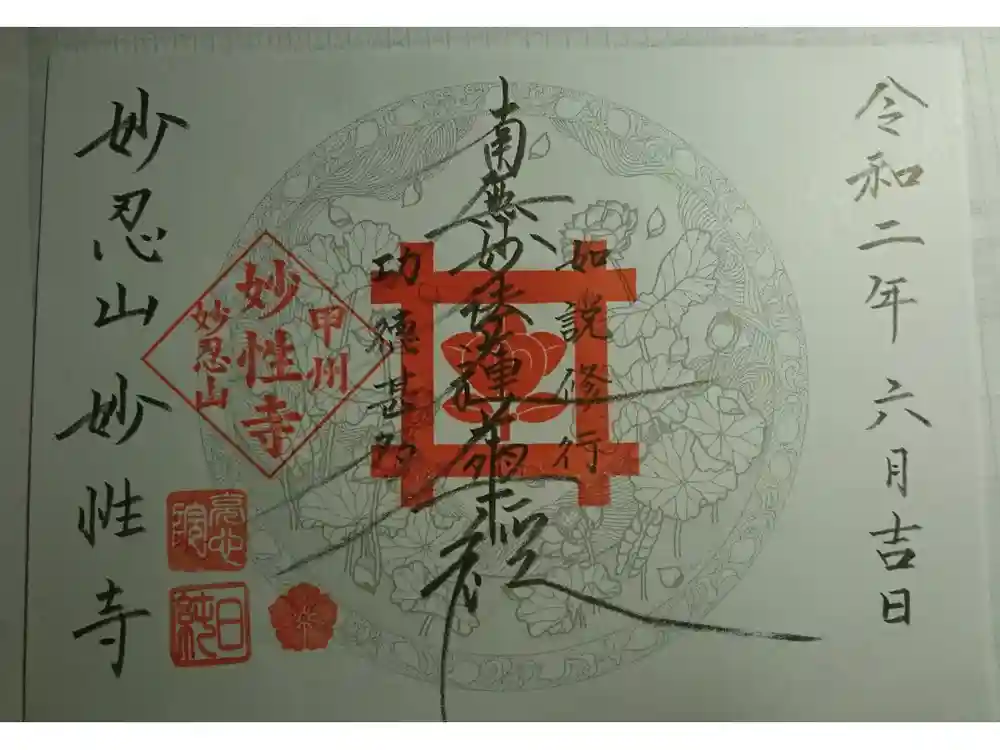 令和二年 六月吉日
如説修行
南無妙法蓮華経
功徳甚多
妙忍山 妙性寺
甲州
妙性寺
妙忍山
日純